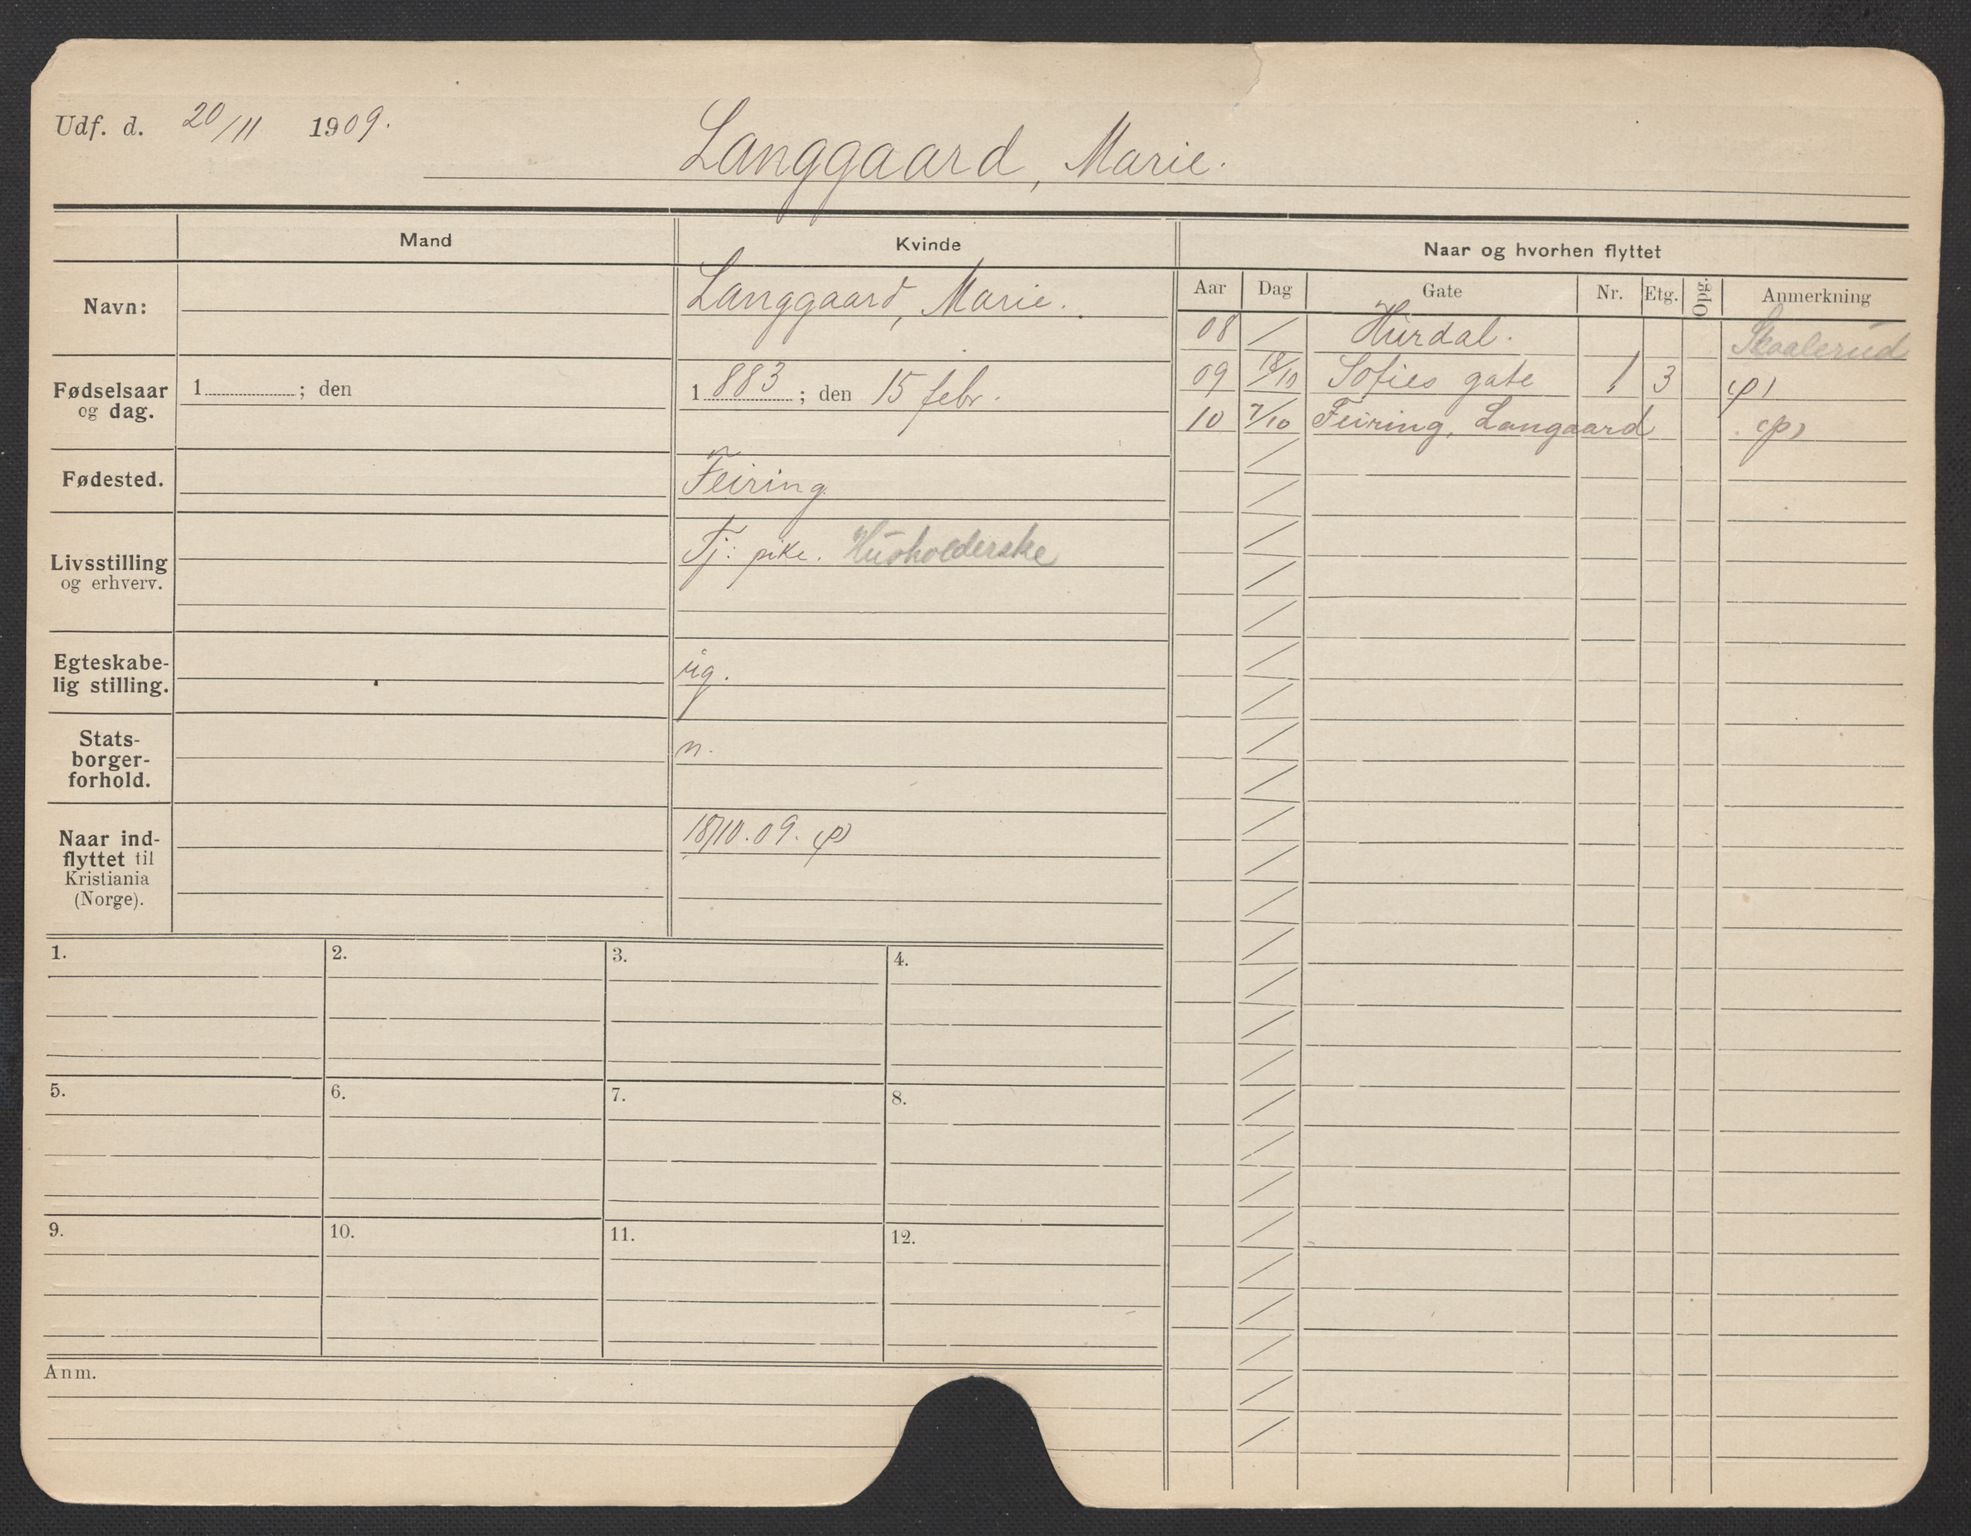 Udf. d. 20/11 1909.
Langgaard, Marie.
Mand
Kvinde
Naar og hvorhen flyttet
Navn:
Langgaard, Marie.
Aar Dag Gate Nr. Etg. Opg. Anmerkning
08 / Hurdal. Skaalerud
09 18/10 Sofies gate 1 3 (p)
10 7/10 Feiring, Langaard (p)
Fødselsaar
og dag.
1 ; den
1883; den 15 febr.
Fødested.
Feiring.
Livsstilling
og erhverv.
Tj: pike. Husholderske
Egteskabe-
lig stilling.
ug.
Stats-
borger-
forhold.
n.
Naar ind-
flyttet til
Kristiania
(Norge).
18/10. 09. (p)
1. 2. 3. 4.
5. 6. 7. 8.
9. 10. 11. 12.
Anm.